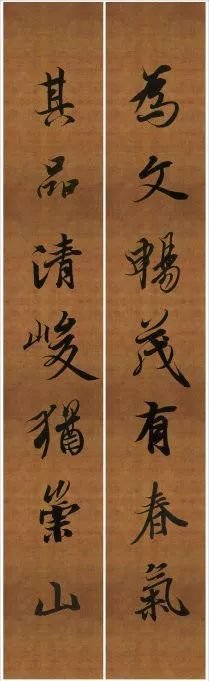 為文暢茂有春氣
其品清峻猶崇山